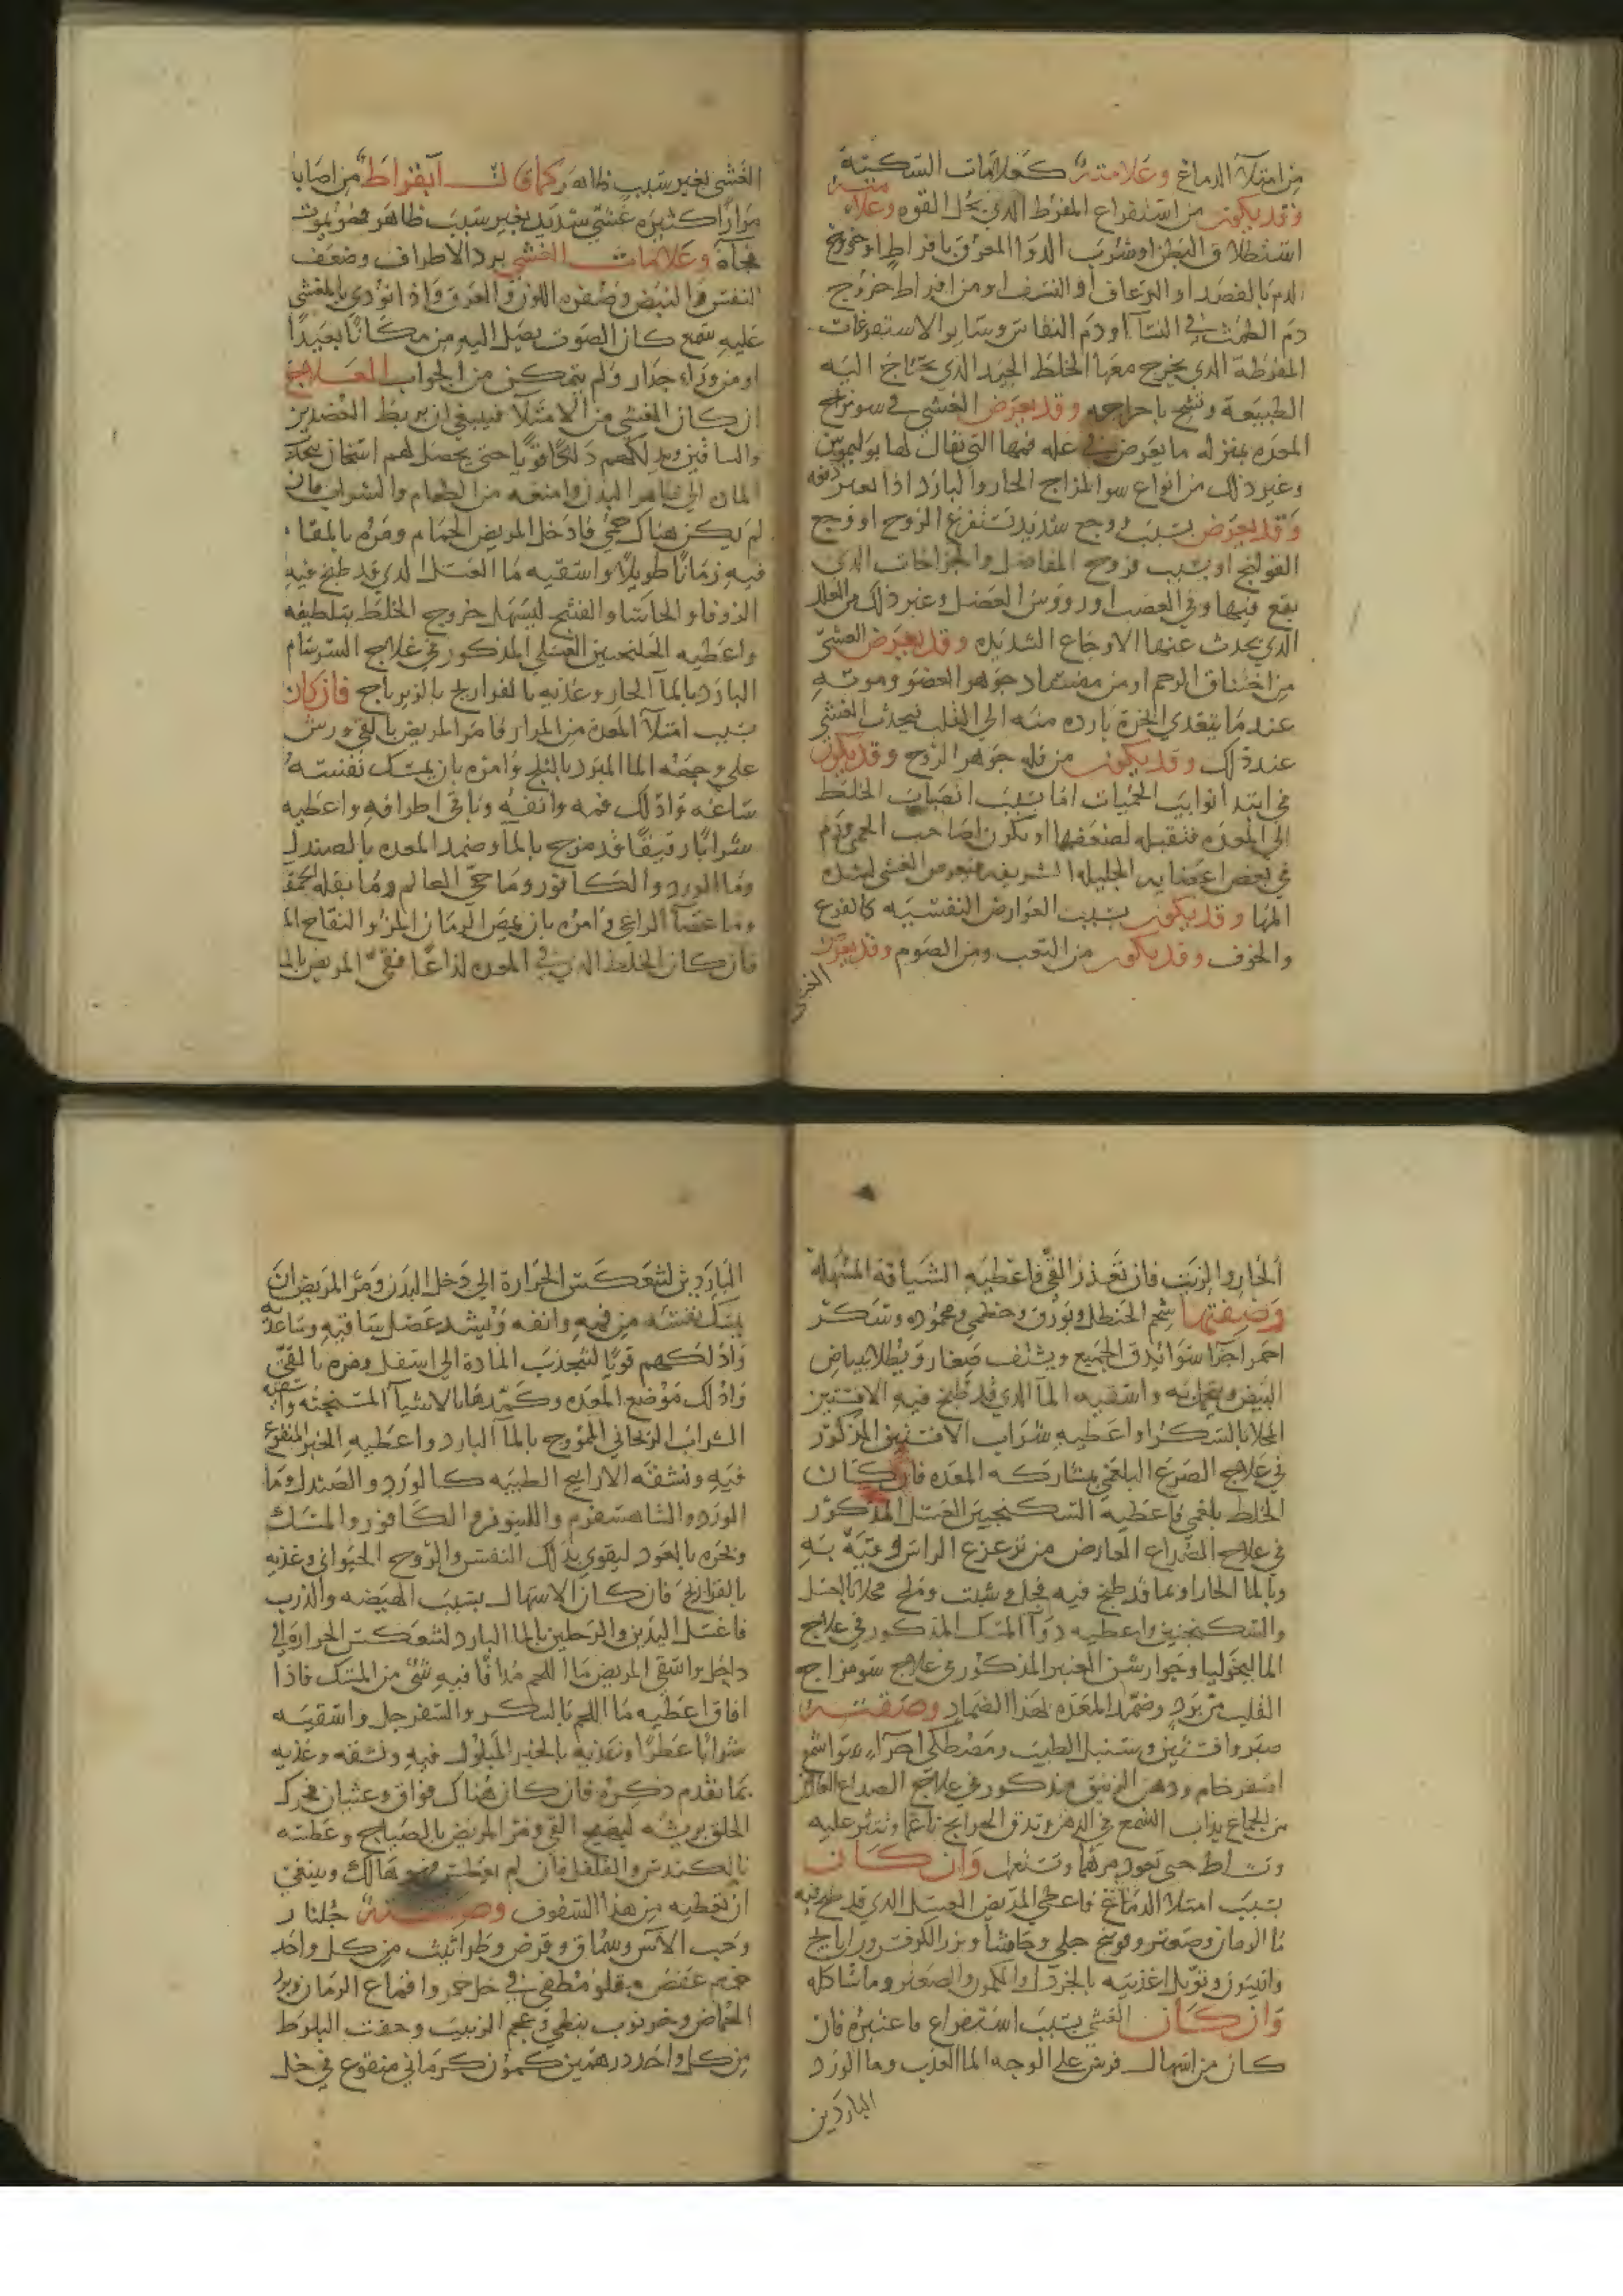 من امتلاء الدماغ وعلامته كعلامات السكتة
وقد يكون من استفراغ المفرط الذي يحل القوه وعلامته
استطلاق البطن او شرب الدوا المعرق بافراط او خروج
الدم بالفصد او الرعاف او النزف او من افراط خروج
دم الطمث في النسآ او دم النفاس وساير الاستفرغات
المفرطة الذي يخرج معها الخلط الجيد الذي يحتاج اليه
الطبيعة وتشح باخراجه وقد يعرض الغشي في سو مزاج
المعده بمنزله ما يعرض في عله فمها التي يقال لها بوليموس
وغير ذلك من انواع سو المزاج الحار والبارد اذا تغير دفعه
وقد يعرض بسبب وجع شديد يستفرغ الروح او وجع
القولنج او بسبب قروح المفاصل والجراحات الذي
يقع فيها وفي العصب او رووس العضل وغير ذلك من العلل
الذي يحدث عنها الاوجاع الشديده وقد يعرض الغشي
من اختناق الرحم او من فساد جوهر العضو وموته
عندما يتعدى ابخرة بارده منه الى القلب فيحدث الغشي
عند ذلك وقد يكون من قله جوهر الروح وقد يكون
في ابتدا نوايب الحميات اما بسبب انصباب الخلط
الى المعده فتقبله لضعفها او يكون لصاحب الحمى ورم
في بعض اعضايه الجليله الشريفه فيعرض الغشي لشده
المها وقد يكون بسبب العوارض النفسيه كالفزع
والخوف وقد يكون من التعب ومن الصوم وقد يعرض
الغشي
الغشي بغير سبب ظاهر كما قال ابقراط من اصابه
مرارا كثيره غشي شديد بغير سبب ظاهر فهو يموت
فجاه وعلامات الغشي برد الاطراف وضعف
النفس والنبض وصفره اللون والعرق واذا نودي بالمغشي
عليه سمع كان الصوت يصل اليه من مكانا بعيدا
او من وراء جدار ولم يتمكن من الجواب العلاج
ان كان الغشي من الامتلا فينبغي ان يربط العضدين
والساقين ويدلكهم دلكا قويا حتى يحصل لهم اسخان يجذب
الماده الى ظاهر البدن وامنعه من الطعام والشراب فان
لم يكن هناك حمى فادخل المريض الحمام ومره بالمقام
فيه زمانا طويلا واسقيه ما العسل الذي قد طبخ فيه
الزوفا والحاشا والفنتج ليسهل خروج الخلط بتلطيفه
واعطيه الجلنجبين العسلي المذكور في علاج السرسام
البارد بالمآ الحار وغذيه بالفراريج بالزيرباج فان كان
بسبب امتلآ المعده من المرار فامر المريض بالقي ورش
على وجهه الما المبرد بالثلج وامره بان يمسك نفسه
ساعه وادلك فمه وانفه وباقي اطرافه واعطيه
شرابا رقيقا قد مزج بالمآ وضمد المعده بالصندل
وما الورد والكافور وما حي العالم وما بقله الحمقا
وما عصا الراعي وامره بان يمص الرمان المز والتفاح المز
فان كان الخلط الذي في المعده لذاعا فنقي المريض بالما
الحار والزيت فان تعذر القي فاعطيه الشيافة المسهلة
وصفتها شحم الحنظل وبورق وخطمي ومحموده وسكر
احمر اجزآ سوا يدق الجميع ويشيف صغار ويطلا ببياض
البيض ويحمل به واسقيه المآ الذي قد طبخ فيه الافسنتين
المحلا بالسكر او اعطيه شراب الافسنتين المذكور
في علاج الصرع البلغمي بمشاركه المعده فان كان
الخلط بلغمي فاعطيه السكنجبين العسل المذكور
في علاج الصداع العارض من تزعزع الراس وقيه به
وبالما الحار او بما قد طبخ فيه فجل وشبت وملح محلا بالعسل
والسكنجبين واعطيه دوآ المسك المذكور في علاج
الماليخوليا وجوارشن العنبر المذكور في علاج سو مزاج
القلب من برد وضمد المعده بهذا الضماد وصفته
صبر وافسنتين وسنبل الطيب ومصطكى اجزآء سوا شمع
اصفر خام ودهن الزنبق مذكور في علاج الصداع العارض
من الجماع يذاب الشمع في الدهن ويدق الحوايج ناعما وتنثر عليه
وتساط حتى تعود مرهما وتستعمل وان كان
بسبب امتلا الدماغ فاعطي المريض العسل الذي قد طبخ فيه
ما الرمان وصعتر وفوتنج جبلي وحاشا وبزر الكرفس ورازيانج
وانيسون وتوبل اغذيته بالخردل والكمون والصعتر وما شاكله
وان كان الغشي بسبب استفراغ فاعتبره فان
كان من اسهال فرش على الوجه الما العذب وما الورد
الباردين
الباردين لتعكس الحرارة الى داخل البدن ومر المريض ان
يمسك نفسه من فمه وانفه وتشد عضل ساقيه وساعديه
وادلكهم قويا لتجذب المادة الى اسفل ومره بالقي
وادلك موضع المعده وكمدها بالاشيآ المسخنه واسقيه
الشراب الريحاني الممزوج بالمآ البارد واعطيه الخبز المنقوع
فيه ونشقه الارايح الطيبه كالورد والصندل وما
الورد والشاهسفرم واللينوفر والكافور والمسك
وبخره بالعود ليقوي بذلك النفس والروح الحيواني وغذيه
بالفراريج فان كان الاسهال بسبب الهيضه والذرب
فاغسل اليدين والرجلين بالما البارد لتعكس الحرارة الى
داخل واسقي المريض ما اللحم مدافا فيه شي من المسك فاذا
افاق اعطيه ما اللحم بالسكر والسفرجل واسقيه
شرابا عطرا وتغذيه بالخبز المبلول فيه وتنشقه وغذيه
بما تقدم ذكره فان كان هناك فواق وغثيان فحرك
الحلق بريشه ليهيج القي ومر المريض بالصياح وعطسه
بالكندس والفلفل فان لم يعطس فهو هالك وينبغي
ان تعطيه من هذا السفوف وصفته جلنار
وحب الآس وسماق وقرض وطراثيث من كل واحد
عفص مقلو مطفى في خل خمر واقماع الرمان وبزر
الحماض وخرنوب نبطي وعجم الزبيب وجفت البلوط
من كل واحد درهمين كمون كرماني منقوع في خل